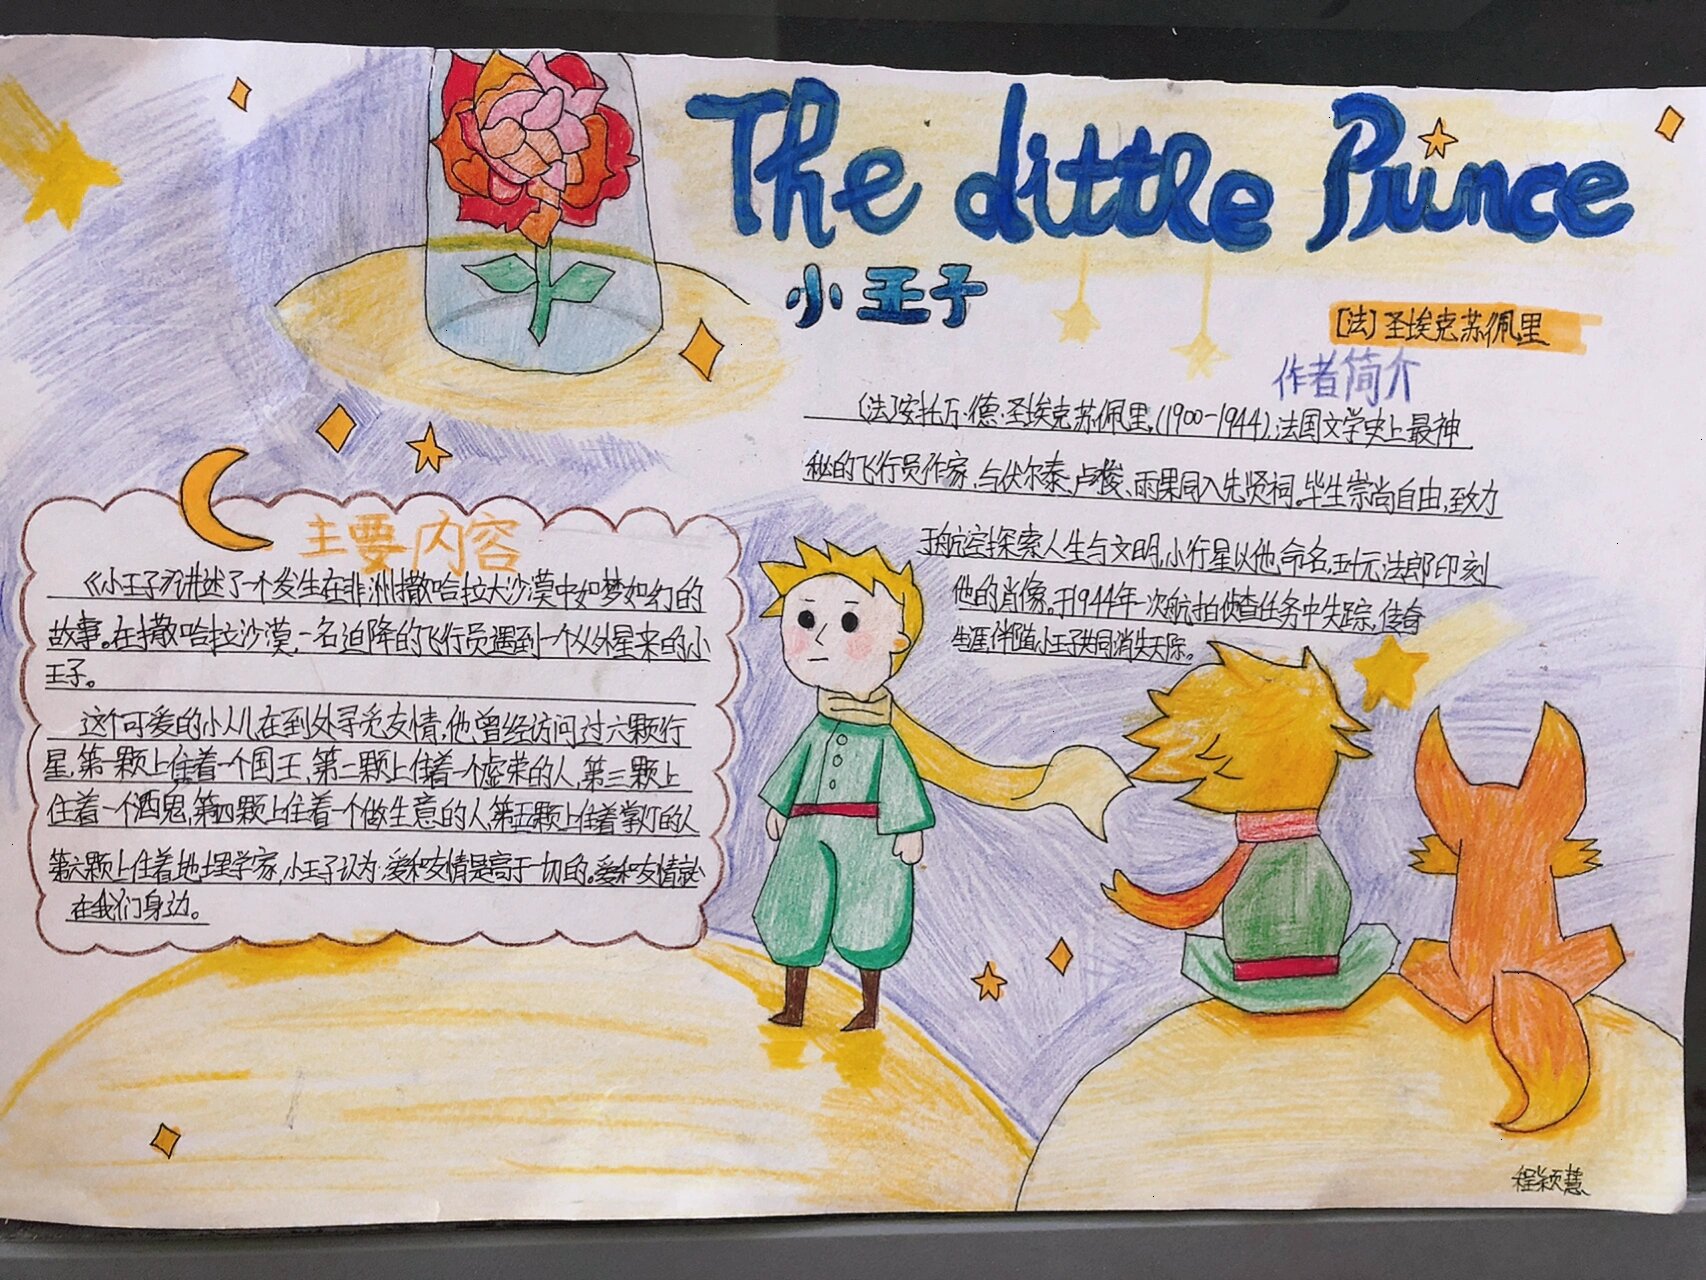 The Little Prince
小王子
[法]圣埃克苏佩里
作者简介
(法)安托万·德·圣埃克苏佩里,(1900-1944),法国文学史上最神
秘的飞行员作家,与伏尔泰、卢梭、雨果同入先贤祠。毕生崇尚自由,致力
于航空探索人生与文明,小行星以他命名,五十元法郎印刻
他的肖像。于1944年一次航拍侦查任务中失踪,传奇
生涯,伴随小王子共同消失天际。
主要内容
《小王子》讲述了一个发生在非洲撒哈拉大沙漠中如梦如幻的
故事。在撒哈拉沙漠,一名迫降的飞行员遇到一个从外星来的小
王子。
这个可爱的小人儿在到处寻觅友情,他曾经访问过六颗行
星,第一颗上住着一个国王,第二颗上住着一个虚荣的人,第三颗上
住着一个酒鬼,第四颗上住着一个做生意的人,第五颗上住着掌灯的人
第六颗上住着地理学家,小王子认为:爱和友情是高于一切的。爱和友情就
在我们身边。
程颖慧